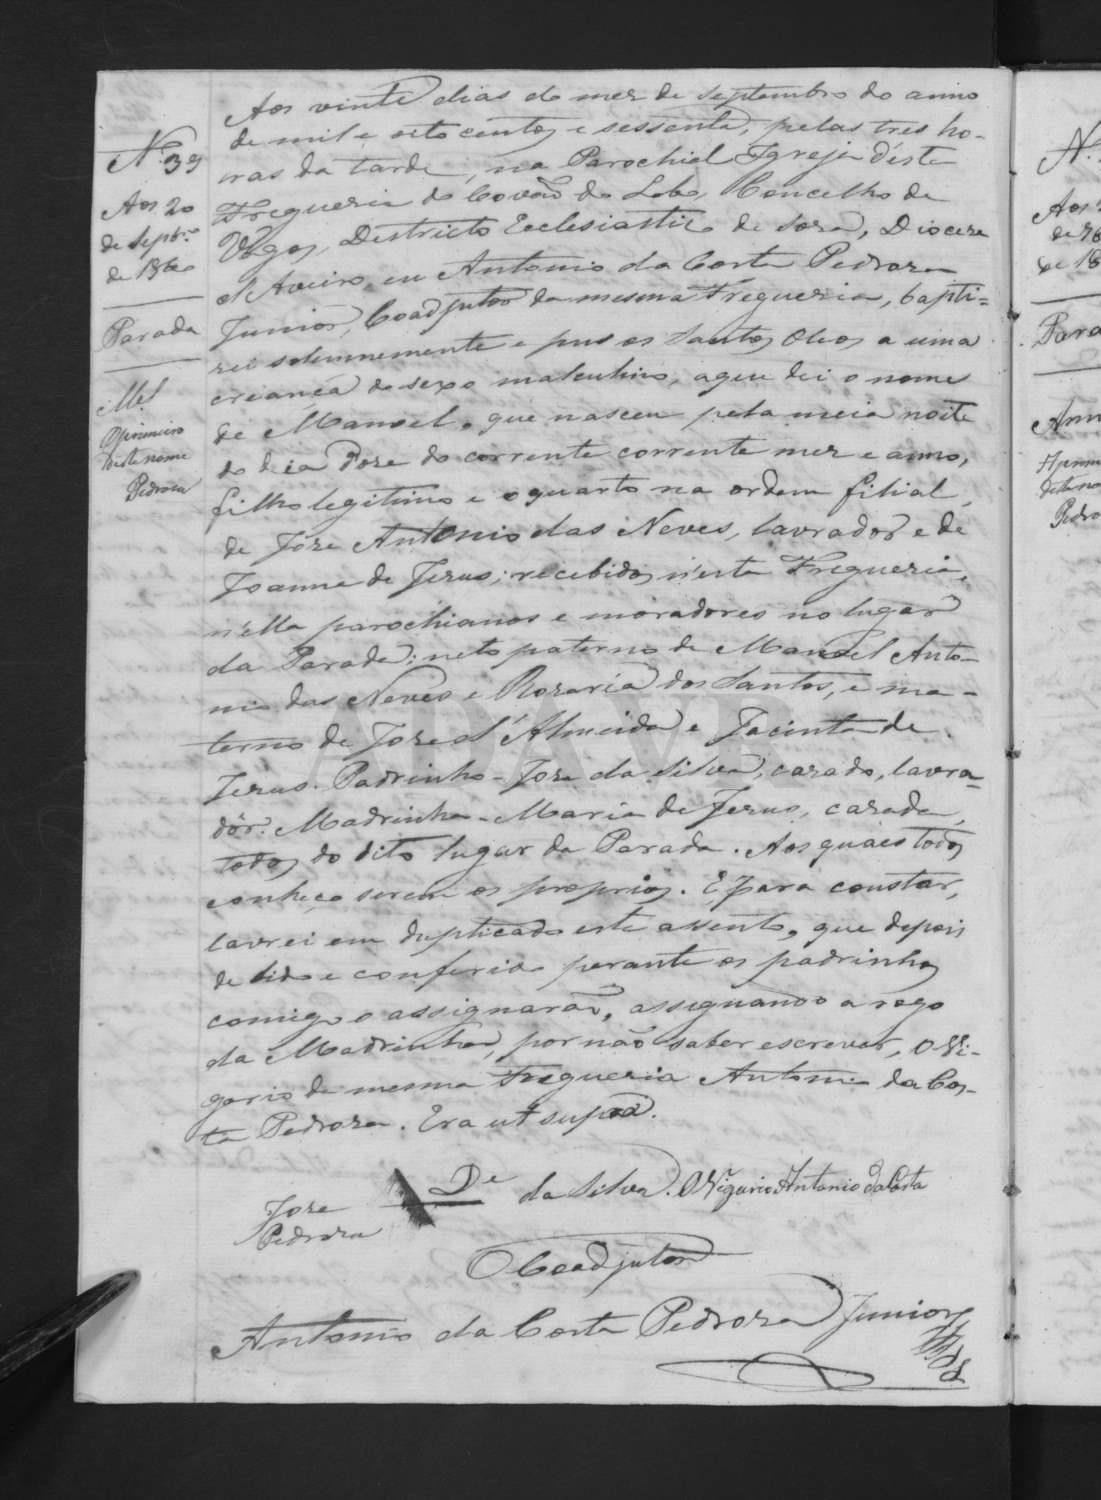 Nº 39
Aos 20
de Septbrº
de 1860
Parada
Mel
O primeiro
deste nome
Pedroza
Aos vinte dias do mez de Septembro do anno
de mil e oito centos e sessenta, pelas tres ho-
ras da tarde, na Parochial Igreja d'esta
Freguezia do Covão do Lobo, Concelho de
Vagos, Destricto Ecclesiastico de Soza, Diocese
d'Aveiro, eu Antonio da Costa Pedroza
Junior, Coadjutor da mesma Freguezia, bapti=
zei solemnemente e pus os Santos Oleos a uma
criança do sexo masculino, a que dei o nome
de Manoel, que nasceu pela meia noite
do dia doze do corrente corrente mez e anno,
filho legitimo e o quarto na ordem filial,
de Józe Antonio das Neves, lavrador e de
Joanna de Jezus; recebidos n'esta Freguezia,
n'ella parochianos e moradores no lugar
da Parada; neto paterno de Manoel Anto-
nio das Neves e Rozaria dos Santos, e ma-
terno de Joze d'Almeida e Jacinta de
Jezus. Padrinho - Joze da Silva, cazado, lavra-
dôr. Madrinha - Maria de Jezus, cazada,
todos do dito lugar da Parada. Aos quaes todos
conheço serem os proprios. E para constar,
lavrei em duplicado este assento, que depois
de lido e conferido perante os padrinhos
comigo o assignarão, assignando a rogo
da Madrinha, por não saber escrever, o Vi-
gario da mesma Freguezia Antonio da Cos-
ta Pedroza. Era ut supra.
Joze De da Silva. O Vigario Antonio da Costa
Pedroza
O Coadjutor
Antonio da Costa Pedroza Junior
ADAVR
Nº
Aos 2
de
de 18
Para
Ann
A prim
deste no
Pedro